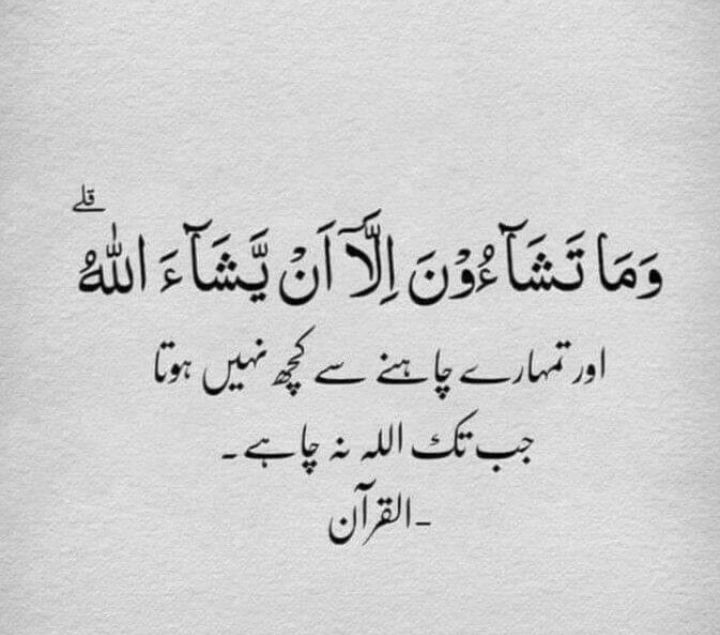 وَمَا تَشَآءُوْنَ اِلَّآ اَنْ يَّشَآءَ اللّٰهُ ۗ
اور تمہارے چاہنے سے کچھ نہیں ہوتا
جب تک اللہ نہ چاہے۔
-القرآن